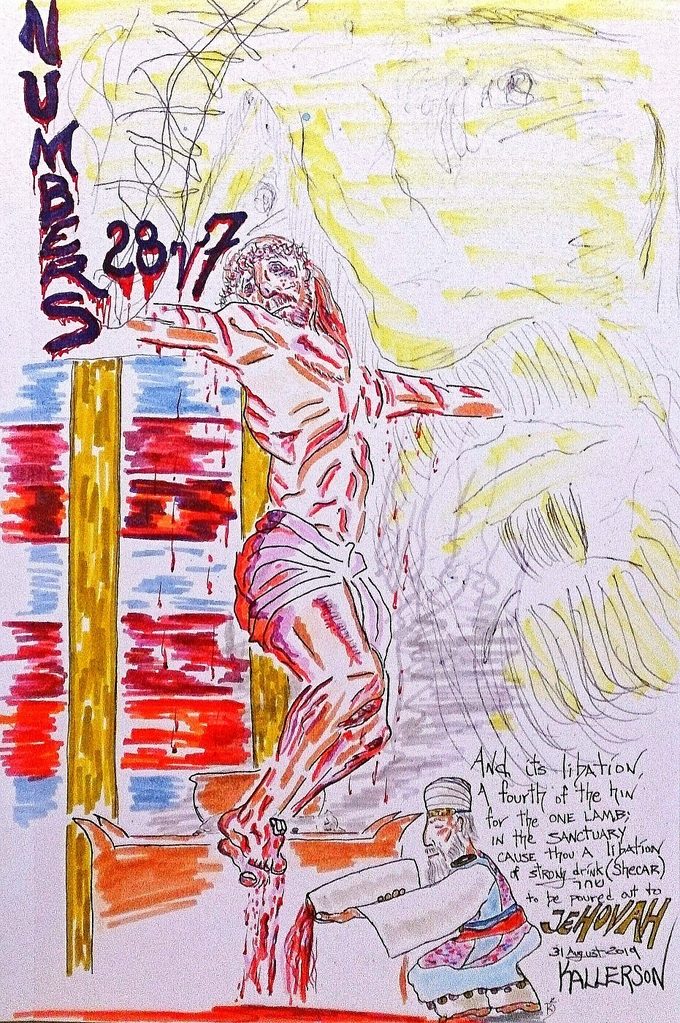 NUMBERS
28v7
And its libation,
A fourth of the hin
for the ONE LAMB;
in the SANCTUARY
CAUSE thou A libation
of strong drink (Shecar)
שכר
to be poured out to
JEHOVAH
31 August 2019
KALLERSON